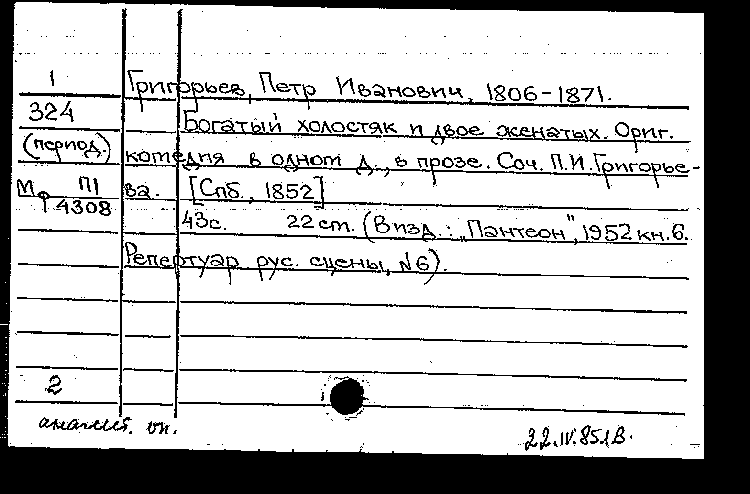 1 Григорьев, Петр Иванович, 1806-1871.
324 Богатый холостяк и двое женатых. Ориг.
(период.) комедия в одном д., в прозе. Соч. П.И. Григорье-
Мф П1 ва. [Спб., 1852]
4308 43с. 22 см. (В изд.: „Пантеон", 1952 кн. 6.
Репертуар рус. сцены, №6).
2
аналит. оп.
22.IV.85г.